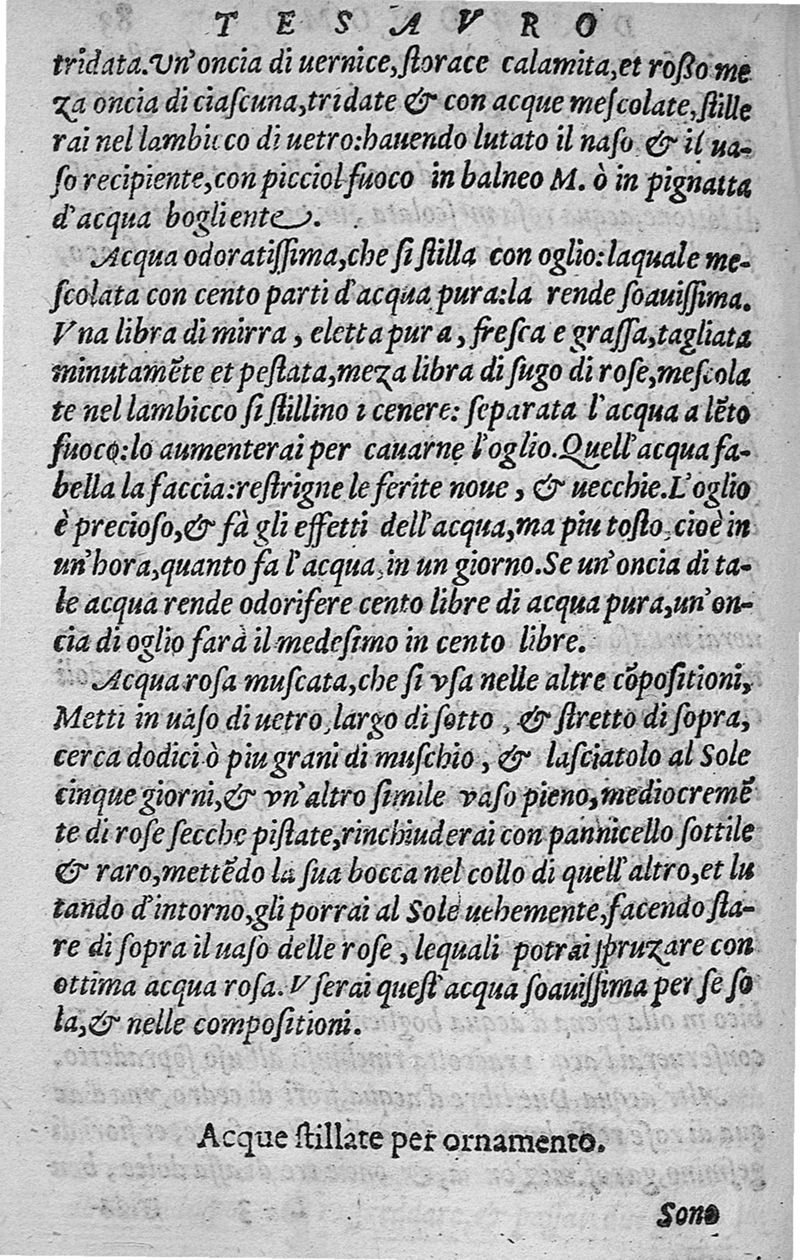 TESAVRO
tridata.Vn'oncia di uernice, ſtorace calamita, et roßo me
za oncia di ciaſcuna, tridate & con acque meſcolate, ſtille
rai nel lambicco di uetro: hauendo lutato il naſo & il ua-
ſo recipiente, con picciol fuoco in balneo M. ò in pignatta
d'acqua bogliente.
Acqua odoratiſſima, che ſi ſtilla con oglio: laquale me-
ſcolata con cento parti d'acqua pura: la rende ſoauiſſima.
Vna libra di mirra, eletta pura, freſca e graſſa, tagliata
minutamẽte et peſtata, meza libra di ſugo di roſe, meſcola
te nel lambicco ſi ſtillino ı cenere: ſeparata l'acqua a lẽto
fuoco: lo aumenterai per cauarne l'oglio. Quell'acqua fa-
bella la faccia: reſtrigne le ferite noue, & uecchie. L'oglio
è precioſo, & fà gli effetti dell'acqua, ma piu toſto, cioè in
un'hora, quanto fa l'acqua, in un giorno. Se un'oncia di ta-
le acqua rende odorifere cento libre di acqua pura, un'on-
cia di oglio farà il medeſimo in cento libre.
Acqua roſa muſcata, che ſi vſa nelle altre cõpoſitioni,
Metti in uaſo di uetro, largo di ſotto, & ſtretto di ſopra,
cerca dodici ò piu grani di muſchio, & laſciatolo al Sole
cinque giorni, & vn'altro ſimile vaſo pieno, mediocremẽ
te di roſe ſecche piſtate, rinchiuderai con pannicello ſottile
& raro, mettẽdo la ſua bocca nel collo di quell'altro, et lu
tando d'intorno, gli porrai al Sole uehemente, facendo ſta-
re di ſopra il uaſo delle roſe, lequali potrai ſpruzare con
ottima acqua roſa. Vſerai queſt'acqua ſoauiſſima per ſe ſo
la, & nelle compoſitioni.
Acque ſtillate per ornamento.
Sono